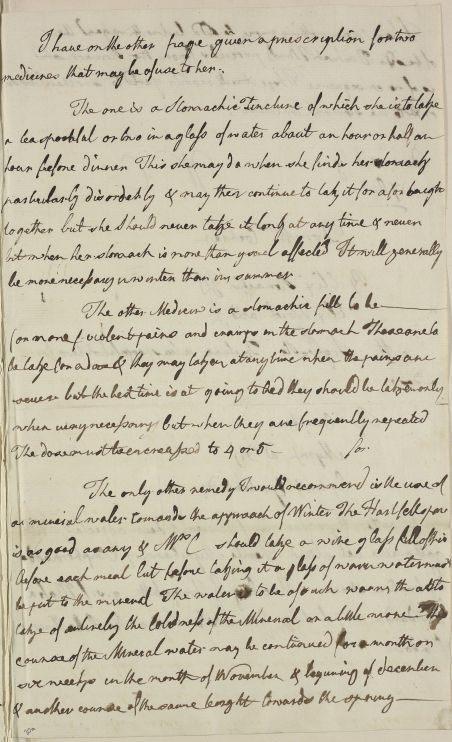 I have on the other page given a prescription for two
medicines that may be of use to her.
The one is a Stomachic Tincture of which she is to take
a teaspoonful or two in a glass of water about an hour or half an
hour before dinner This she may do when she finds her stomach
particularly disorderly & may then continue to take it for a fortnight
together but she should never take it long at any time & never
but when her stomach is more than usual affected It will generally
be more necessary in winter than in summer
The other Medicin is a stomachic pill to be
for more violent pains and cramps in the stomach These are to
be take for a dose & they may taken at any time when the pains are
severe but the best time is at going to bed they should be taken only
when very necessary but when they are frequently repeated
The dose must be increased to 4 or 5
The only other remedy I would recommend is the use of
a mineral water towards the approach of Winter The Hartfell spaw
is as good as any & Mrs C should take a wine glass full of this
before each meal but before taking it a glass of warm water must
be put to the mineral The water is to be of such warmth as to
take of entirely the coldness of the Mineral or a little more The
course of the Mineral water may be continued for a month or
six weeks in the month of November & beginning of december
& another course of the same lenght towards the spring